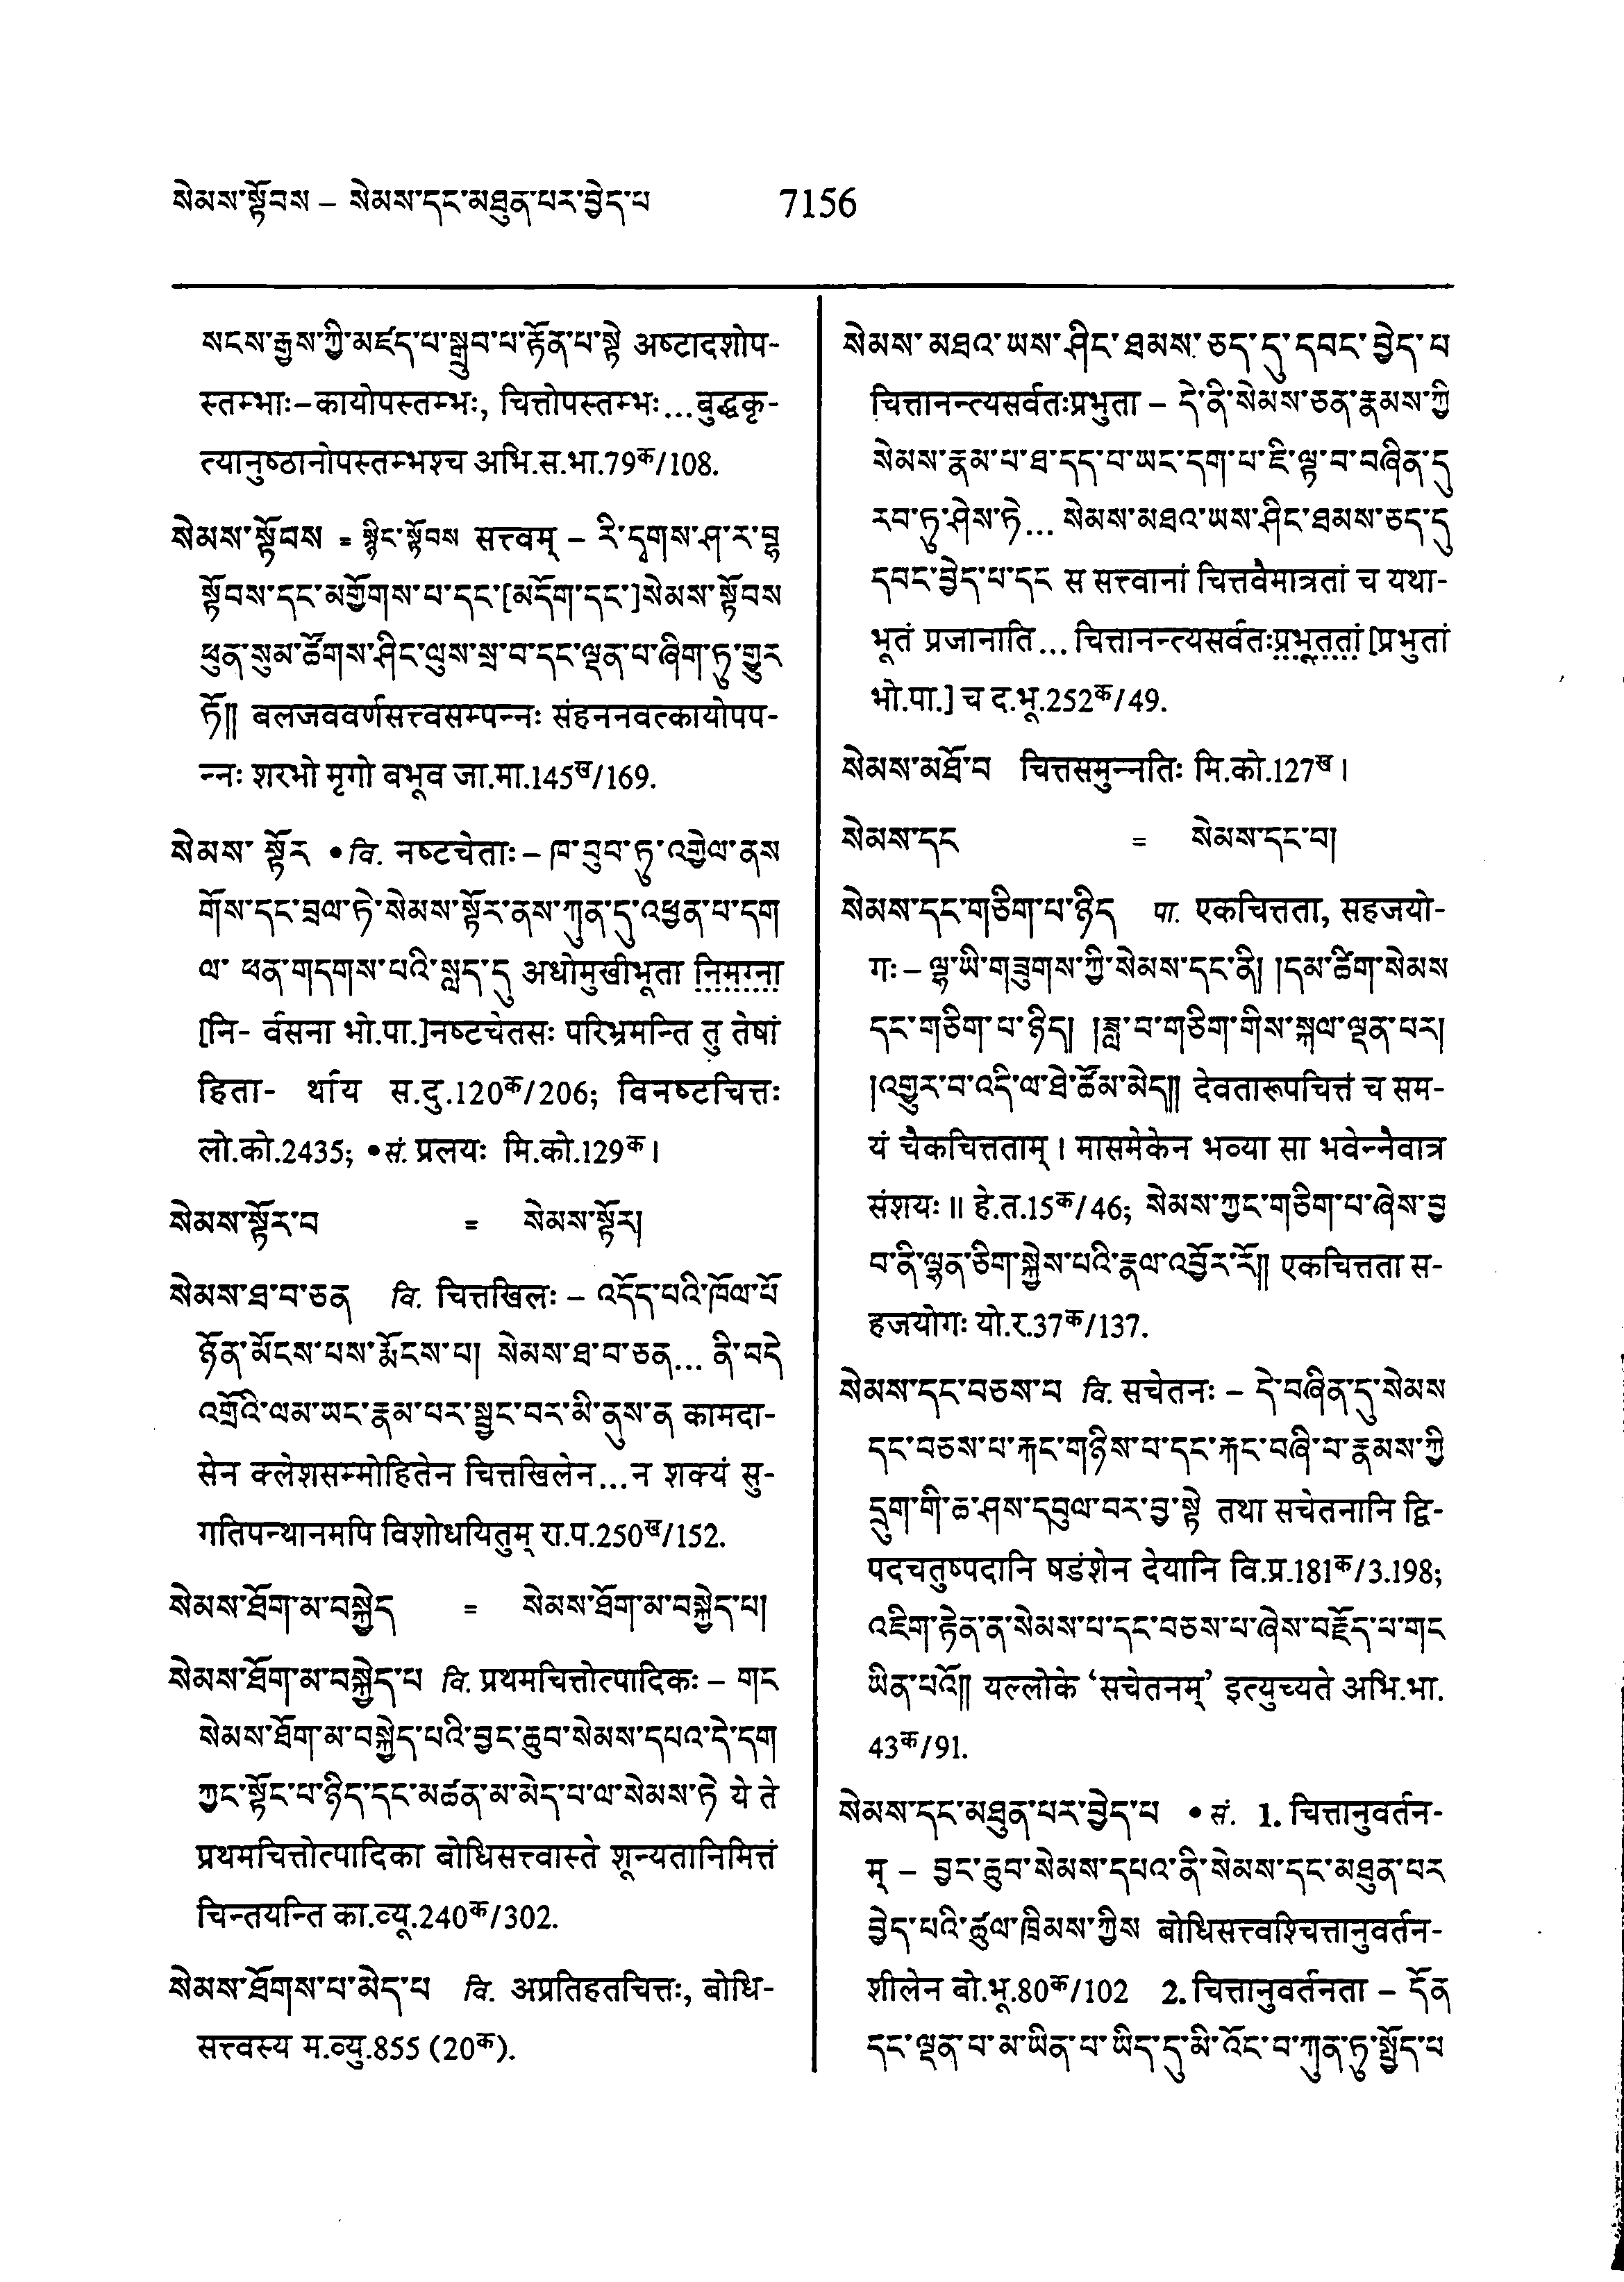 སེམས་སྟོབས – སེམས་དང་མཐུན་པར་བྱེད་པ 7156
སངས་རྒྱས་ཀྱི་མཛད་པ་སྒྲུབ་པ་རྟོན་པ་སྟེ अष्टादशोप-
स्तम्भाः–कायोपस्तम्भः, चित्तोपस्तम्भः...बुद्धकृ-
त्यानुष्ठानोपस्तम्भश्च अभि.स.भा.79क/108.
སེམས་སྟོབས = སྙིང་སྟོབས सत्त्वम् – རི་དྭགས་ཤ་ར་བྷ
སྟོབས་དང་མགྱོགས་པ་དང་[མདོག་དང་]སེམས་སྟོབས
ཕུན་སུམ་ཚོགས་ཤིང་ལུས་སྲ་བ་དང་ལྡན་པ་ཞིག་ཏུ་གྱུར
ཏོ།། बलजववर्णसत्त्वसम्पन्नः संहननवत्कायोपप-
न्नः शरभो मृगो बभूव जा.मा.145ख/169.
སེམས་ སྟོར •वि. नष्टचेताः – ཁ་བུབ་ཏུ་འགྱེལ་ནས
གོས་དང་བྲལ་ཏེ་སེམས་སྟོར་ནས་ཀུན་དུ་འཕྱན་པ་དག
ལ་ ཕན་གདགས་པའི་སླད་དུ अधोमुखीभूता निमग्ना
[नि- र्वसना भो.पा.]नष्टचेतसः परिभ्रमन्ति तु तेषां
हिता- र्थाय स.दु.120क/206; विनष्टचित्तः
लो.को.2435; •सं. प्रलयः मि.को.129क।
སེམས་སྟོར་བ = སེམས་སྟོར།
སེམས་ཐ་བ་ཅན वि. चित्तखिलः – འདོད་པའི་ཁོལ་པོ
ཉོན་མོངས་པས་རྨོངས་པ། སེམས་ཐ་བ་ཅན... ནི་བདེ
འགྲོའི་ལམ་ཡང་རྣམ་པར་སྦྱང་བར་མི་ནུས་ན कामदा-
सेन क्लेशसम्मोहितेन चित्तखिलेन...न शक्यं सु-
गतिपन्थानमपि विशोधयितुम् रा.प.250ख/152.
སེམས་ཐོག་མ་བསྐྱེད = སེམས་ཐོག་མ་བསྐྱེད་པ།
སེམས་ཐོག་མ་བསྐྱེད་པ वि. प्रथमचित्तोत्पादिकः – གང
སེམས་ཐོག་མ་བསྐྱེད་པའི་བྱང་ཆུབ་སེམས་དཔའ་དེ་དག
ཀྱང་སྟོང་པ་ཉིད་དང་མཚན་མ་མེད་པ་ལ་སེམས་ཏེ ये ते
प्रथमचित्तोत्पादिका बोधिसत्त्वास्ते शून्यतानिमित्तं
चिन्तयन्ति का.व्यू.240क/302.
སེམས་ཐོགས་པ་མེད་པ वि. अप्रतिहतचित्तः, बोधि-
सत्त्वस्य म.व्यु.855 (20क).
སེམས་ མཐའ་ ཡས་ ཤིང་ ཐམས་ ཅད་ དུ་ དབང་ བྱེད་ པ
चित्तानन्त्यसर्वतःप्रभुता – དེ་ནི་སེམས་ཅན་རྣམས་ཀྱི
སེམས་རྣམ་པ་ཐ་དད་པ་ཡང་དག་པ་ཇི་ལྟ་བ་བཞིན་དུ
རབ་ཏུ་ཤེས་ཏེ... སེམས་མཐའ་ཡས་ཤིང་ཐམས་ཅད་དུ
དབང་བྱེད་པ་དང स सत्त्वानां चित्तवैमात्रतां च यथा-
भूतं प्रजानाति... चित्तानन्त्यसर्वतःप्रभूततां [प्रभुतां
भो.पा.] च द.भू.252क/49.
སེམས་མཐོ་བ चित्तसमुन्नतिः मि.को.127ख।
སེམས་དང = སེམས་དང་བ།
སེམས་དང་གཅིག་པ་ཉིད पा. एकचित्तता, सहजयो-
गः – ལྷ་ཡི་གཟུགས་ཀྱི་སེམས་དང་ནི། །དམ་ཚིག་སེམས
དང་གཅིག་པ་ཉིད། །ཟླ་བ་གཅིག་གིས་སྐལ་ལྡན་པར།
།འགྱུར་བ་འདི་ལ་ཐེ་ཚོམ་མེད།། देवतारूपचित्तं च सम-
यं चैकचित्तताम्। मासमेकेन भव्या सा भवेन्नैवात्र
संशयः॥ हे.त.15क/46; སེམས་ཀྱང་གཅིག་པ་ཞེས་བྱ
བ་ནི་ལྷན་ཅིག་སྐྱེས་པའི་རྣལ་འབྱོར་རོ།། एकचित्तता स-
हजयोगः यो.र.37क/137.
སེམས་དང་བཅས་པ वि. सचेतनः – དེ་བཞིན་དུ་སེམས
དང་བཅས་པ་རྐང་གཉིས་པ་དང་རྐང་བཞི་པ་རྣམས་ཀྱི
དྲུག་གི་ཆ་ཤས་དབུལ་བར་བྱ་སྟེ तथा सचेतनानि द्वि-
पदचतुष्पदानि षडंशेन देयानि वि.प्र.181क/3.198;
འཇིག་རྟེན་ན་སེམས་པ་དང་བཅས་པ་ཞེས་བརྗོད་པ་གང
ཡིན་པའོ།། यल्लोके ‘सचेतनम्’ इत्युच्यते अभि.भा.
43क/91.
སེམས་དང་མཐུན་པར་བྱེད་པ • सं. 1. चित्तानुवर्तन-
म् – བྱང་ཆུབ་སེམས་དཔའ་ནི་སེམས་དང་མཐུན་པར
བྱེད་པའི་ཚུལ་ཁྲིམས་ཀྱིས बोधिसत्त्वश्चित्तानुवर्तन-
शीलेन बो.भू.80क/102 2. चित्तानुवर्तनता – དོན
དང་ལྡན་པ་མ་ཡིན་པ་ཡིད་དུ་མི་འོང་བ་ཀུན་ཏུ་སྤྱོད་པ